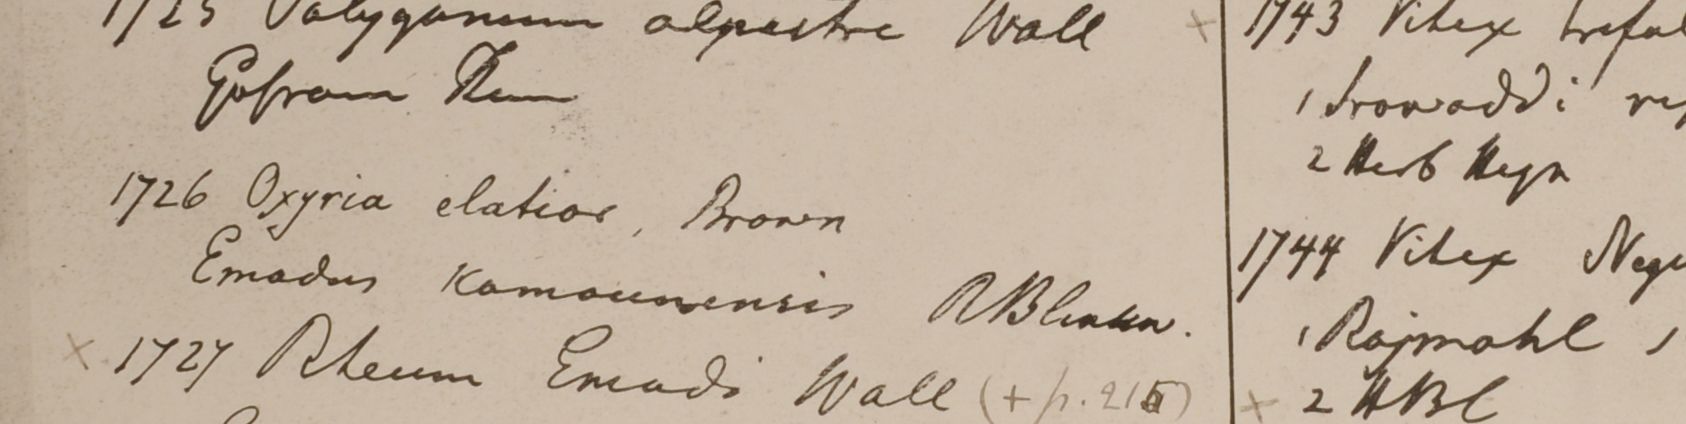 1725 Polygonum alpestre Wall
Gossam Than
1726 Oxyria elatior, Brown
Emodus Kamaunensis RBlinkw.
× 1727 Rheum Emodi Wall (+ p. 215)
× 1743 Vitex trifol
1 Irawaddi
2 Herb Heyn
1744 Vitex Negu
1 Rajmahl
× 2 HBC